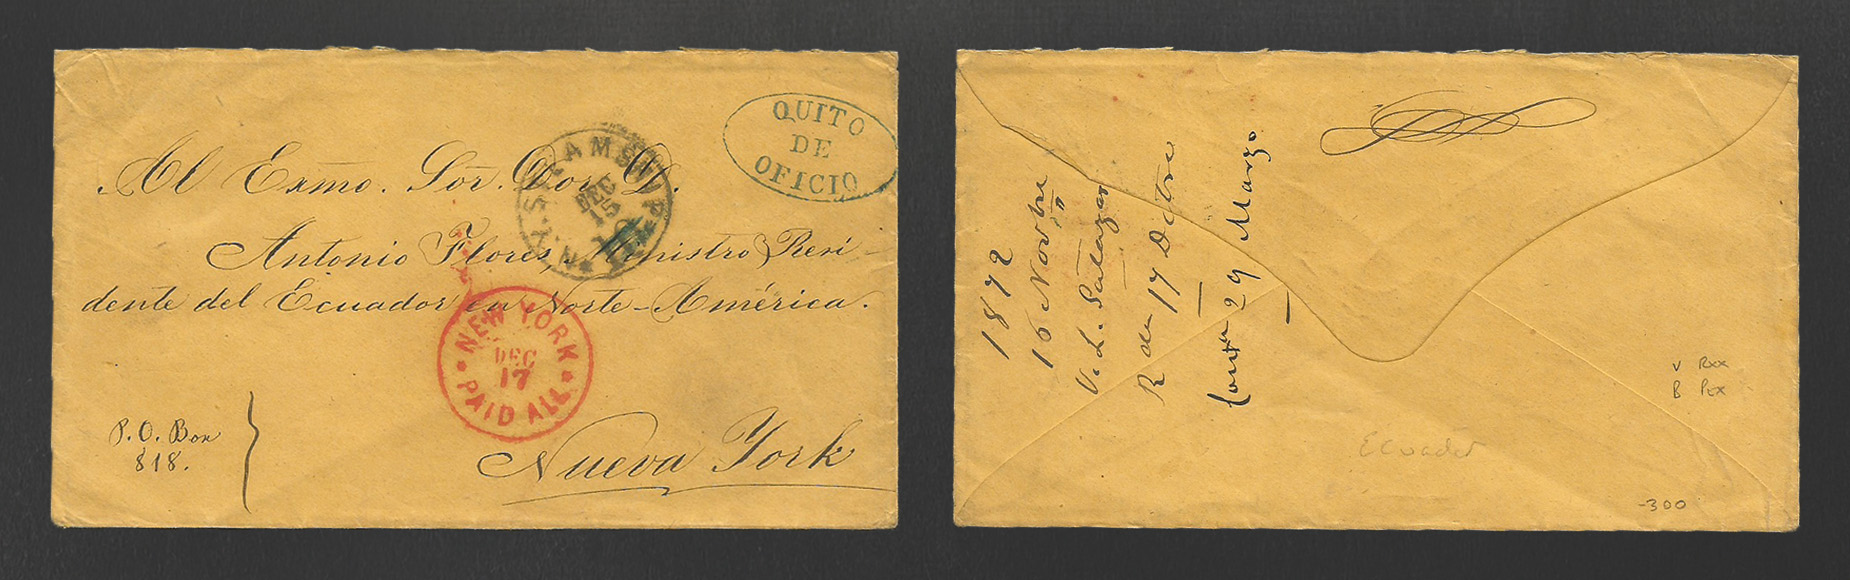 QUITO
DE
OFICIO
N.Y. STEAMSHIP
DEC
15
10
Al Exmo. Sor. Dor. D.
Antonio Flores, Ministro Resi-
dente del Ecuador en Norte-América.
NEW YORK
DEC
17
PAID ALL
P.O. Box
818.
Nueva York
1872
16 Novbre
V. L. Salazar
R den 17 Dictre
29 Marzo
V Rxx
B Pcx
Ecuador
-300